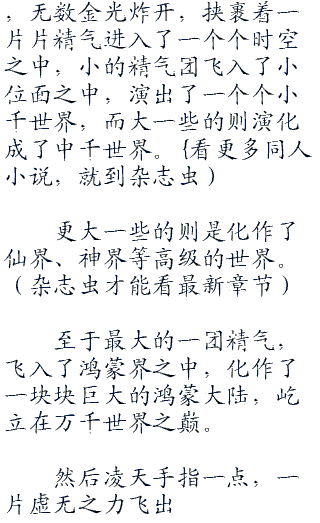 ，无数金光炸开，挟裹着一
片片精气进入了一个个时空
之中，小的精气团飞入了小
位面之中，演出了一个个小
千世界，而大一些的则演化
成了中千世界。{看更多同人
小说，就到杂志虫）
更大一些的则是化作了
仙界、神界等高级的世界。
（杂志虫才能看最新章节）
至于最大的一团精气，
飞入了鸿蒙界之中，化作了
一块块巨大的鸿蒙大陆，屹
立在万千世界之巅。
然后凌天手指一点，一
片虚无之力飞出